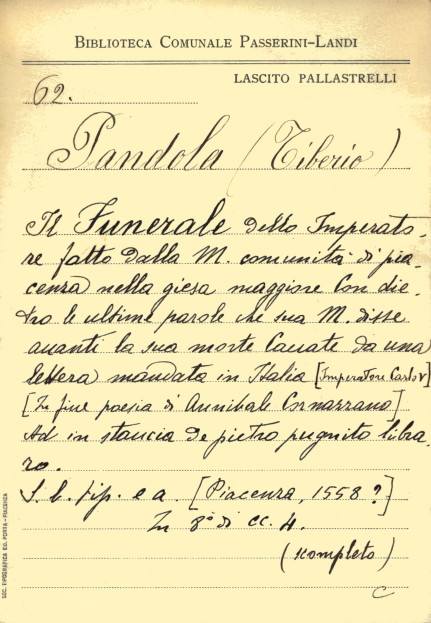 BIBLIOTECA COMUNALE PASSERINI-LANDI
LASCITO PALLASTRELLI
62.
Pandola (Tiberio)
Il Funerale dello Imperato-
re fatto dalla M. comunità di pia-
cenza nella giesa maggiore Con die-
tro le ultime parole che sua M. disse
auanti la sua morte Cauate da una
lettera mandata in Italia [Imperatore Carlo V]
[In fine poesia di Annibale Cornazzano]
Ad in stancia de pietro pugnito libra-
ro.
S. l. tip. e a. [Piacenza, 1558 ?]
In 8° di cc. 4.
(scompleto)
C
SOC. TIPOGRAFICA ED. PORTA-PIACENZA